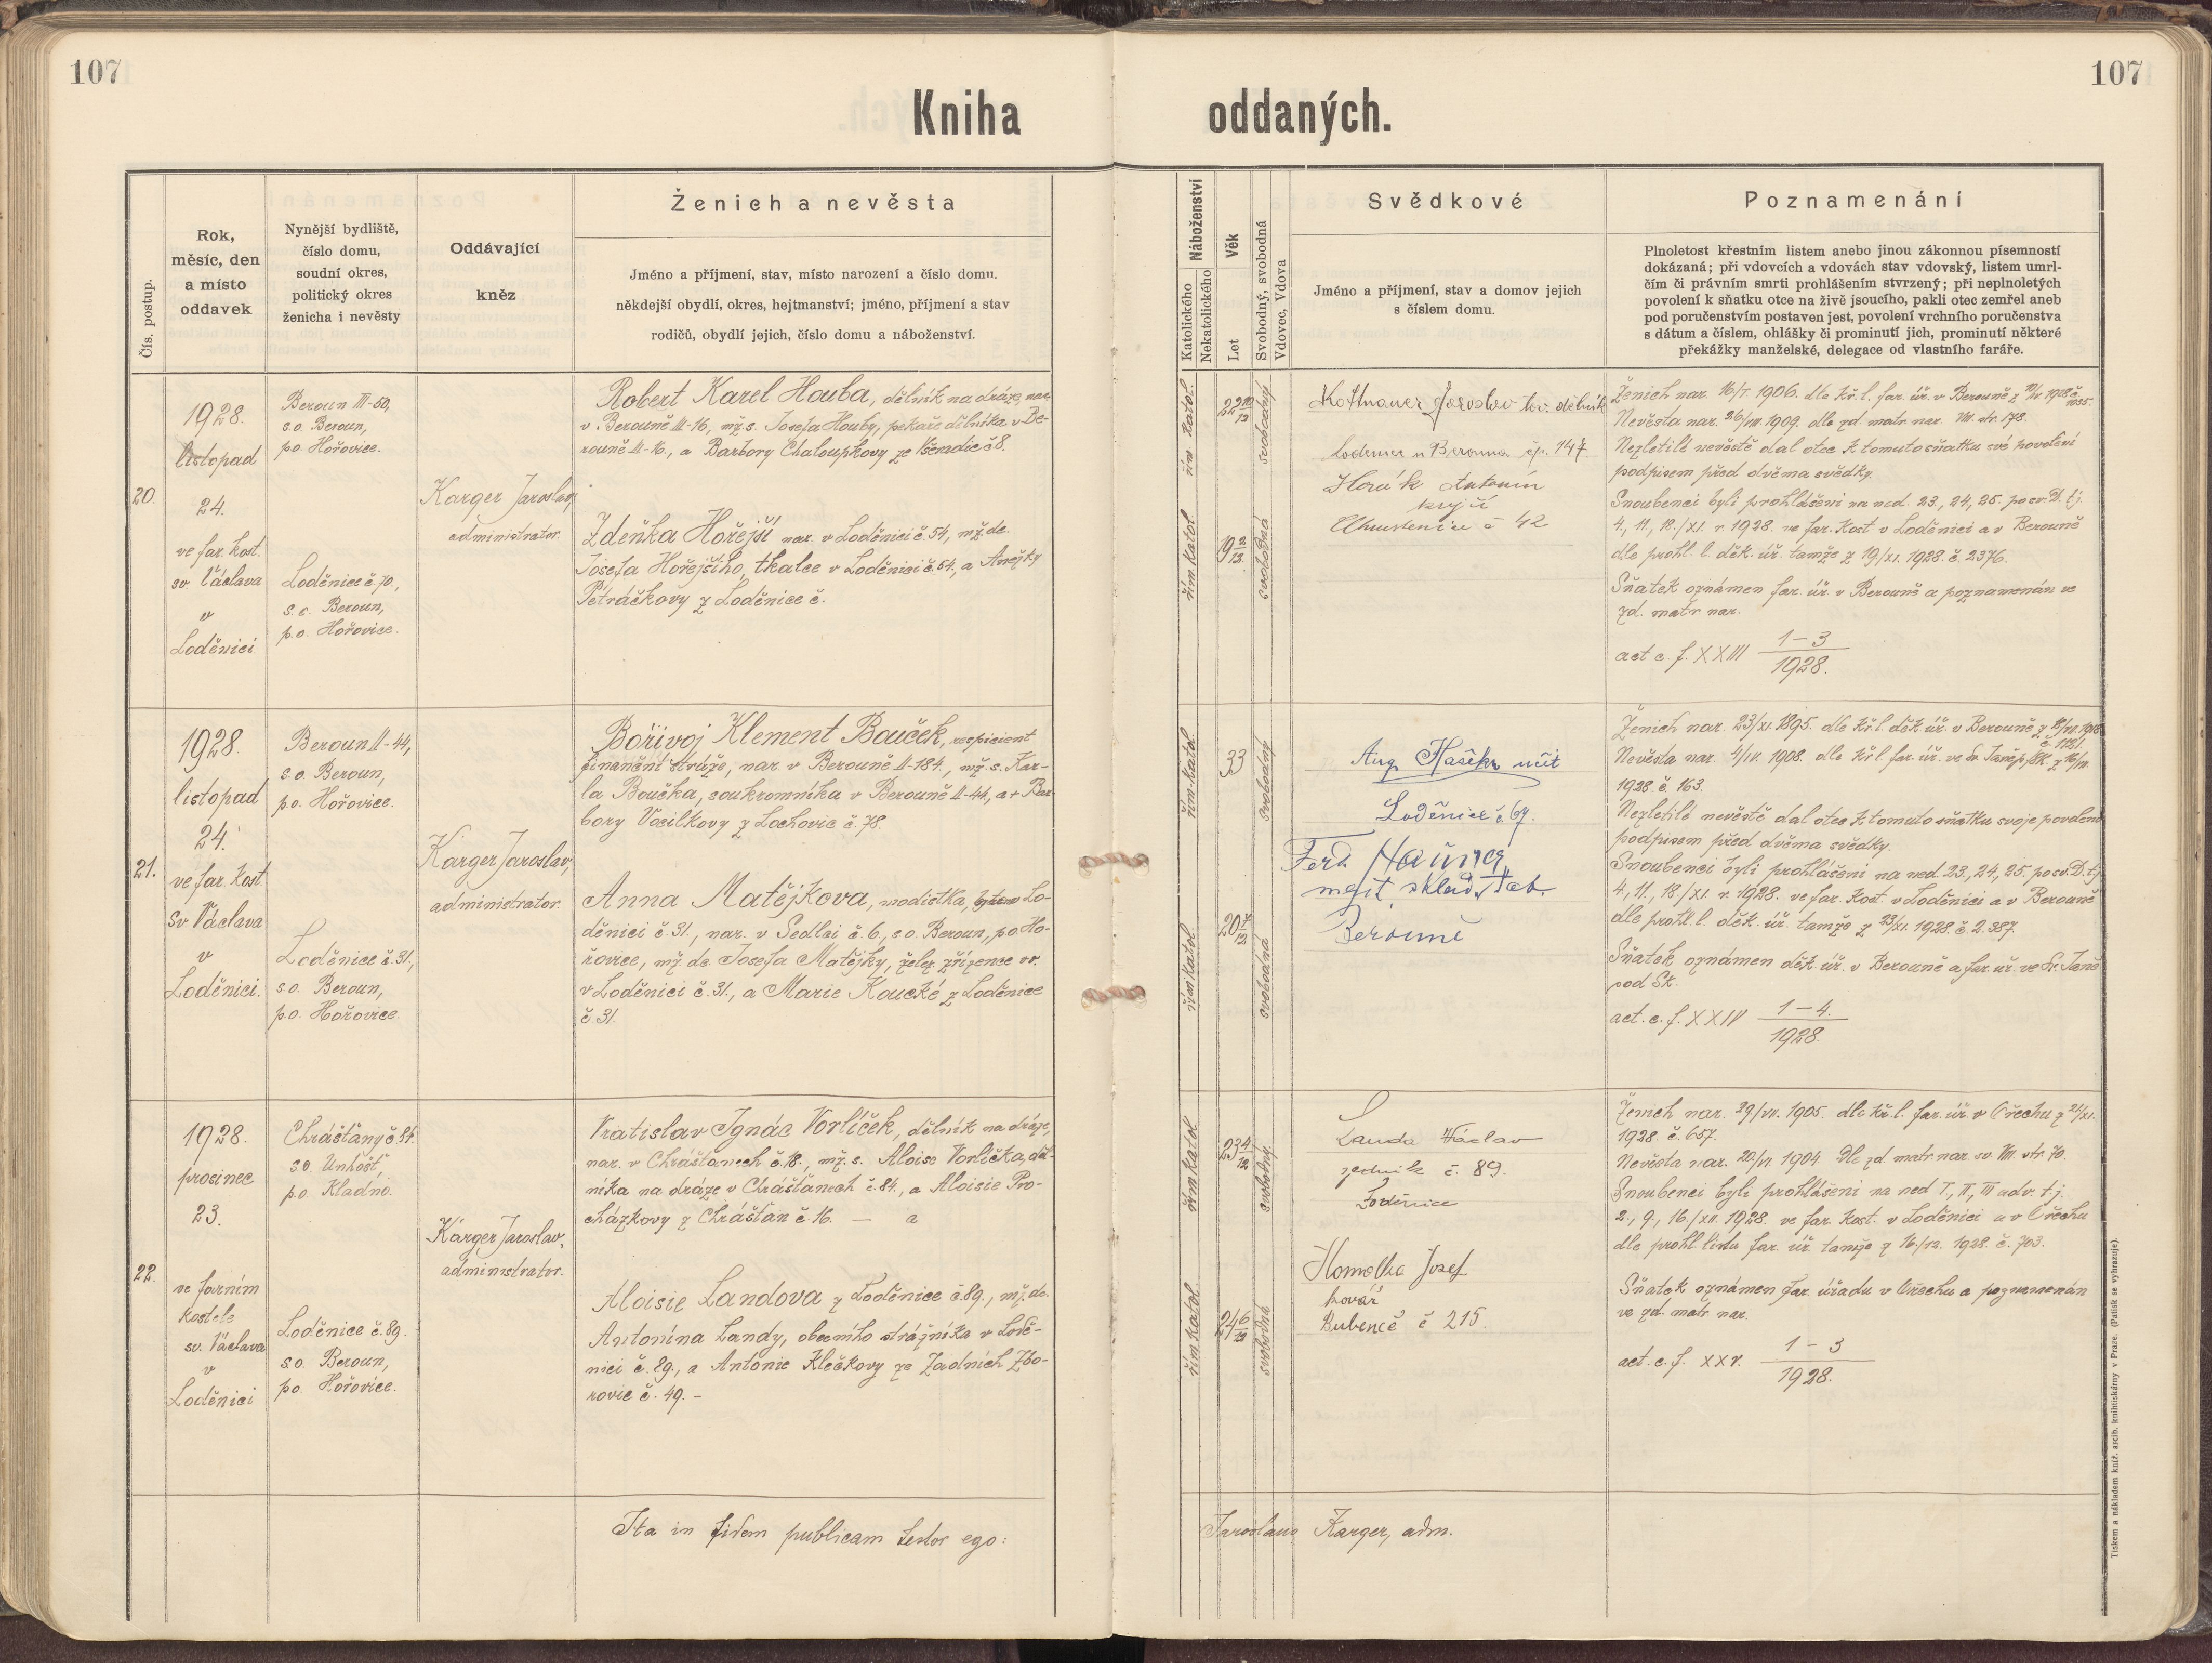 107
107
Kniha oddaných.
Čís. postup.
Rok,
měsíc, den
a místo
oddavek
Nynější bydliště,
číslo domu,
soudní okres,
politický okres
ženicha i nevěsty
Oddávající
kněz
Ženich a nevěsta
Jméno a příjmení, stav, místo narození a číslo domu.
někdejší obydlí, okres, hejtmanství; jméno, příjmení a stav
rodičů, obydlí jejich, číslo domu a náboženství.
Náboženství
Katolického
Nekatolického
Věk
Let
Svobodný, svobodná
Vdovec, Vdova
Svědkové
Jméno a příjmení, stav a domov jejich
s číslem domu.
Poznamenání
Plnoletost křestním listem anebo jinou zákonnou písemností
dokázaná; při vdovcích a vdovách stav vdovský, listem umrl-
čím či právním smrti prohlášením stvrzený; při neplnoletých
povolení k sňatku otce na živě jsoucího, pakli otec zemřel aneb
pod poručenstvím postaven jest, povolení vrchního poručenstva
s dátum a číslem, ohlášky či prominutí jich, prominutí některé
překážky manželské, delegace od vlastního faráře.
20.
1928.
listopad
24.
ve far. kost.
sv. Václava
v
Loděnici
Beroun III-50,
s.o. Beroun,
p.o. Hořovice.
Loděnice č. 70,
s.o. Beroun,
p.o. Hořovice.
Karger Jaroslav,
administrator.
Robert Karel Houba, dělník na dráze, nar.
v Berouně III-16, mž. s. Josefa Houby, pekaře dělníka v Be-
rouně III-16, a Barbory Chaloupkovy ze Všeradic č 8.
Zdeňka Hořejší nar. v Loděnici č. 54, mž. dc.
Josefa Hořejšího, tkalce v Loděnici č. 54, a Anežky
Petráčkovy z Loděnice č.
řím. katol.
řím. katol.
22 10/12
19 2/12
svobodný
svobodná
Jaroslav tov. dělník
Lodenice u Berouna čp. 147.
Horák Antonín
krejčí
Chrustenice č 42
Ženich nar. 16/I. 1906. dle kř. l. far. úř. v Berouně z
Nevěsta nar. 26/VIII. 1909. dle zd. matr. nar. VIII. str. 178.
Nezletilé nevěstě dal otec k tomuto sňatku své povolení
podpisem před dvěma svědky.
Snoubenci byli prohlášeni na ned. 23., 24., 25. po sv. D. t.j.
4., 11., 18./XI. r. 1928. ve far. kost. v Loděnici a v Berouně
dle prohl. l. děk. úř. tamže z 19/XI. 1928. č. 2376.
Sňatek oznámen far. úř. v Berouně a poznamenán ve
zd. matr. nar.
act c. f. XXIII 1-3
1928.
21.
1928.
listopad
24.
ve far. kost
sv. Václava
v
Loděnici.
Beroun II-44,
s.o. Beroun,
p.o. Hořovice.
Loděnice č. 31.,
s.o. Beroun,
p.o. Hořovice.
Karger Jaroslav,
administrator.
Bořivoj Klement Bouček, respicient
finanční stráže, nar. v Berouně II-184., mž. s. Kar-
la Boučka, soukromníka v Berouně II-44, a + Bar-
bory Vocilkovy z Lochovic č. 78.
Anna Matějkova, modistka, Lo-
děnici č. 31., nar. v Sedlci č. 6, s.o. Beroun, p.o. Ho-
řovice, mž. dc. Josefa Matějky, želez. zřízence
v Loděnici č. 31., a Marie Koucké z Loděnice
č. 31.
řím-katol.
řím. katol.
33
20 7/12
svobodný
svobodná
Aug. Hašek učit
Loděnice č. 67.
Ferd.
majit. sklad. Tab.
Berouně
Ženich nar. 23/XI. 1895. dle kř. l. děk. úř. v Berouně z
Nevěsta nar. 4/IV. 1908. dle kř. l. far. úř. ve Sv. Janě p. Sk. z
1928. č. 163.
Nezletilé nevěstě dal otec k tomuto sňatku svoje povolení
podpisem před dvěma svědky.
Snoubenci byli prohlášeni na ned. 23., 24., 25. po sv. D. t.j.
4., 11., 18./XI. r. 1928. ve far. kost. v Loděnici a v Berouně
dle prohl. l. děk. úř. tamže z 23/XI. 1928. č. 2.387.
Sňatek oznámen děk. úř. v Berouně a far. úř. ve Sv. Janě
pod Sk.
act. c. f. XXIV 1-4.
1928.
22.
1928.
prosinec
23.
ve farním
kostele
sv. Václava
v
Loděnici
Chrášťany č. 84.
s.o. Unhošť,
p.o. Kladno.
Loděnice č. 89.
s.o. Beroun,
p.o. Hořovice.
Karger Jaroslav,
administrator.
Vratislav Ignác Vorlíček, dělník na dráze,
nar. v Chrášťanech č. 18., mž. s. Aloise Vorlíčka, děl-
níka na dráze v Chrášťanech č. 84., a Aloisie Pro-
cházkovy z Chrášťan č. 16. — a
Aloisie Landova z Loděnice č. 89., mž. dc.
Antonína Landy, obecního strážníka v Lodě-
nici č. 89., a Antonie Klečkovy ze Zadních Zbo-
rovic č. 49. -
řím. katol.
řím. katol.
23 4/12
24 6/12
svobodný
svobodná
Landa Václav
zedník č. 89.
Loděnice
Homolka Josef
kovář
Bubeneč č 215.
Ženich nar. 29/VII. 1905. dle kř. l. far. úř. v Ořechu z 21/XI.
1928. č. 657.
Nevěsta nar. 20/VI. 1904. Dle zd. matr. nar. sv. VIII. str. 70.
Snoubenci byli prohlášeni na ned. I., II., III. adv. t.j.
2., 9., 16./XII. 1928. ve far. kost. v Loděnici a v Ořechu
dle prohl. listu far. úř. tamže z 16./12. 1928. č. 703.
Sňatek oznámen far. úřadu v Ořechu a poznamenán
ve zd. matr. nar.
act. c. f. XXV. 1-3
1928.
Ita in fidem publicam testor ego: Jaroslaus Karger, adm.
Tiskem a nákladem kníž. arcib. knihtiskárny v Praze. (Patisk se vyhrazuje).